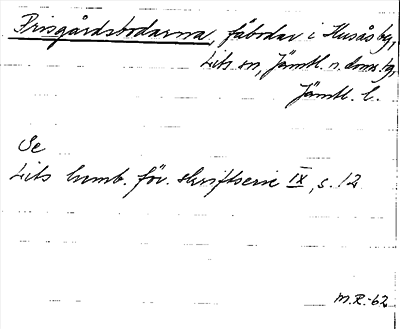 Prisgårdsbodarna, fäbodar i Husås by,
Lits sn, Jämtl. n. doms by,
Jämtl. l.
Se
Lits hemb. för. skriftserie IX, s. 12
M.R.-62